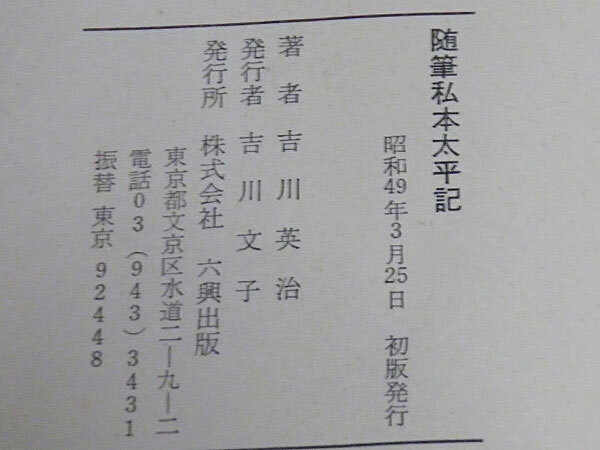 随筆私本太平記
昭和49年3月25日 初版発行
著者 吉川英治
発行者 吉川文子
発行所 株式会社 六興出版
東京都文京区水道二ー九ー二
電話03(943)3431
振替 東京 92448